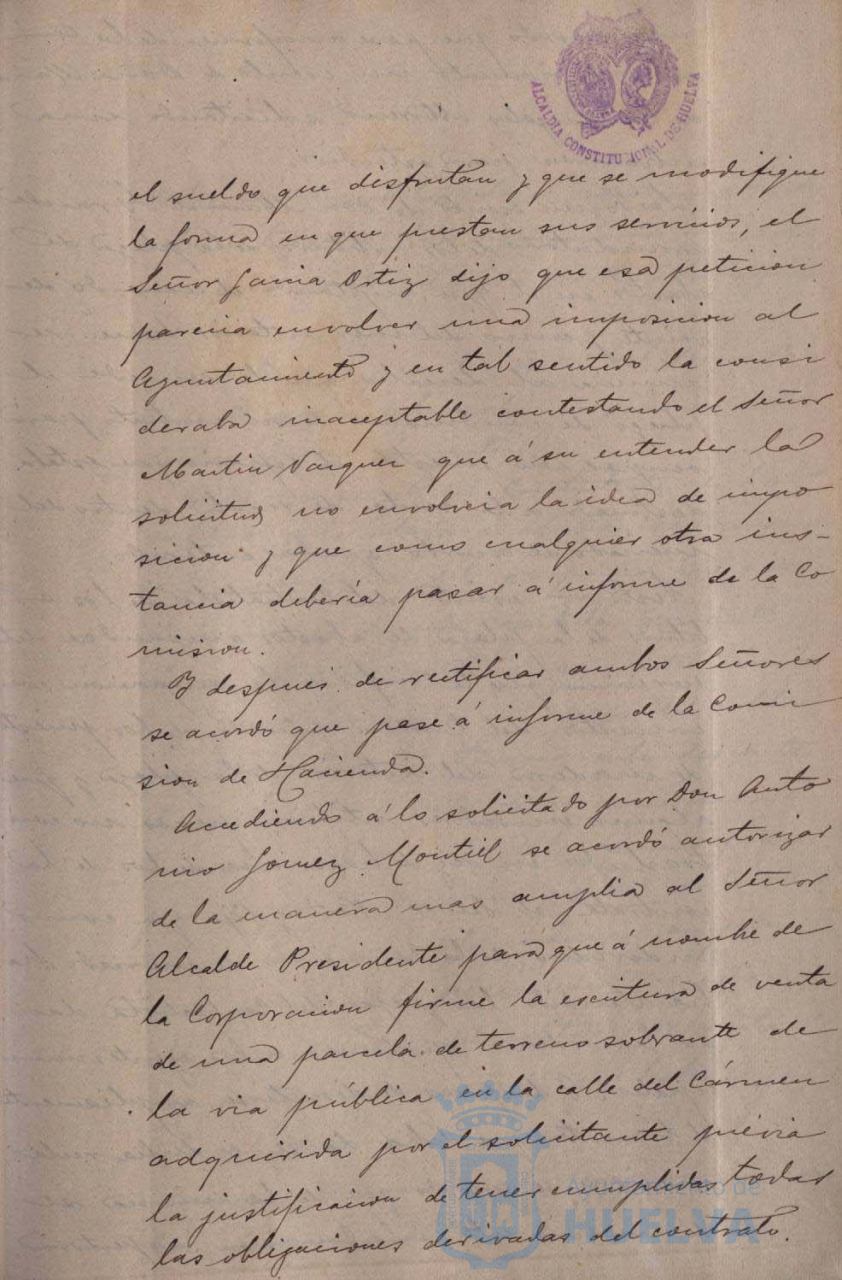 ALCALDIA CONSTITUCIONAL DE HUELVA
el sueldo que disfrutan y que se modifique
la forma en que prestan sus servicios, el
Señor Garcia Ortiz dijo que esa peticion
parecia envolver una imposicion al
Ayuntamiento y en tal sentido la consi
deraba inaceptable contestando el Señor
Martin Vazquez que á su entender la
solicitud no envolvia la idea de impo
sicion y que como cualquier otra ins-
tancia debería pasar á informe de la Co
mision.
Y despues de rectificar ambos Señores
se acordó que pase á informe de la Comi
sion de Hacienda.
Accediendo á lo solicitado por Don Anto
nio Gomez Montiel se acordó autorizar
de la manera mas amplia al Señor
Alcalde Presidente para que á nombre de
la Corporacion firme la escritura de venta
de una parcela de terreno sobrante de
la via pública en la calle del Cármen
adquirida por el solicitante prévia
la justificacion de tener cumplidas todas
las obligaciones derivadas del contrato.
Ayuntamiento de
HUELVA